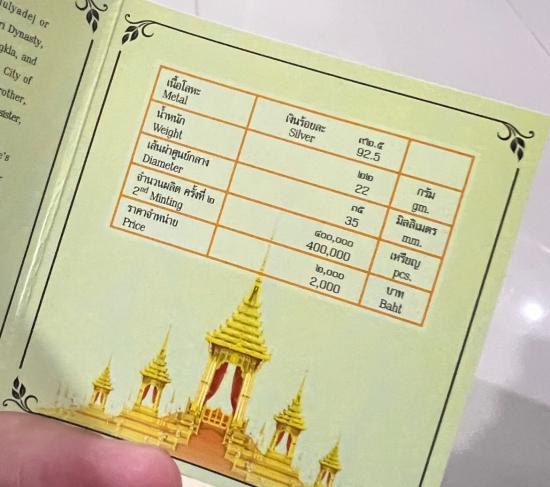 ulyadej or
ri Dynasty,
gkla, and
City of
rother,
sister,
e's
เนื้อโลหะ เงินร้อยละ ๙๒.๕
Metal Silver 92.5
น้ำหนัก ๒๒ กรัม
Weight 22 gm.
เส้นผ่าศูนย์กลาง ๓๕ มิลลิเมตร
Diameter 35 mm.
จำนวนผลิต ครั้งที่ ๒ ๔๐๐,๐๐๐ เหรียญ
2nd Minting 400,000 pcs.
ราคาจำหน่าย ๒,๐๐๐ บาท
Price 2,000 Baht